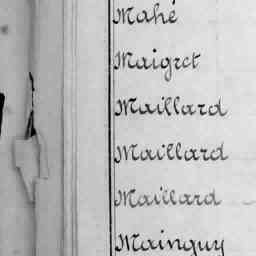 Mahé
Maigret
Maillard
Maillard
Maillard
Mainguy